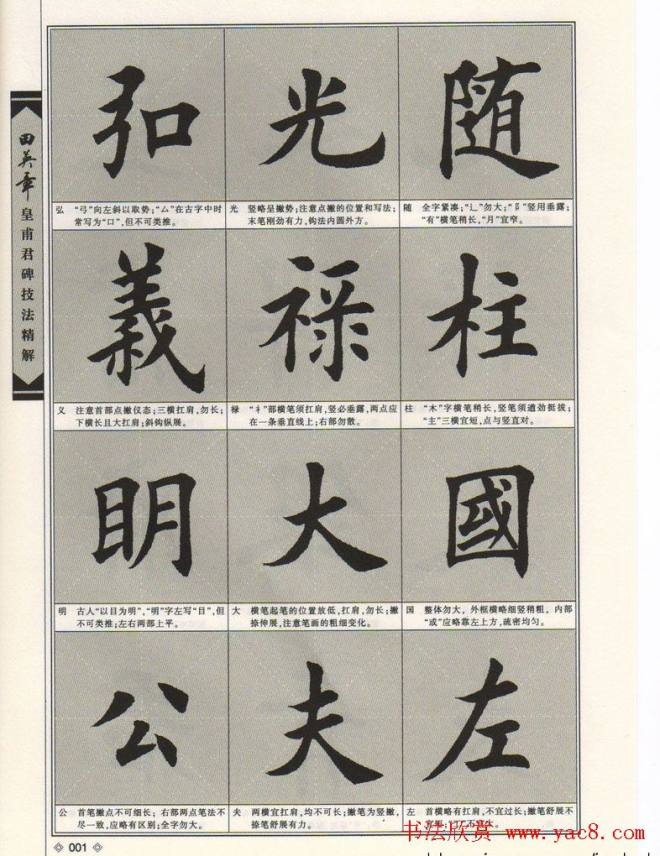 田英章
皇甫君碑技法精解
弘 光 随
弘 “弓”向左斜以取势；“厶”在古字中时
常写为“口”，但不可类推。
光 竖略呈撇势；注意点撇的位置和写法；
末笔刚劲有力，钩法内圆外方。
随 全字紧凑；“辶”勿大；“阝”竖用垂露；
“有”横笔稍长，“月”宜窄。
義 禄 柱
义 注意首部点撇仪态；三横扛肩，勿长；
下横长且大扛肩；斜钩纵展。
禄 “礻”部横笔须扛肩，竖必垂露，两点应
在一条垂直线上；右部勿散。
柱 “木”字横笔稍长，竖笔须遒劲挺拔；
“主”三横宜短，点与竖直对。
明 大 國
明 古人“以目为明”，“明”字左写“目”，但
不可类推；左右两部上平。
大 横笔起笔的位置放低，扛肩，勿长；撇
捺伸展，注意笔画的粗细变化。
国 整体勿大，外框横略细竖稍粗，内部
“或”应略靠左上方，疏密均匀。
公 夫 左
公 首笔撇点不可细长；右部两点笔法不
尽一致，应略有区别；全字勿大。
夫 两横宜扛肩，均不可长；撇笔为竖撇，
捺笔舒展有力。
左 首横略有扛肩，不宜过长；撇笔舒展不
书法欣赏 www.yac8.com
001